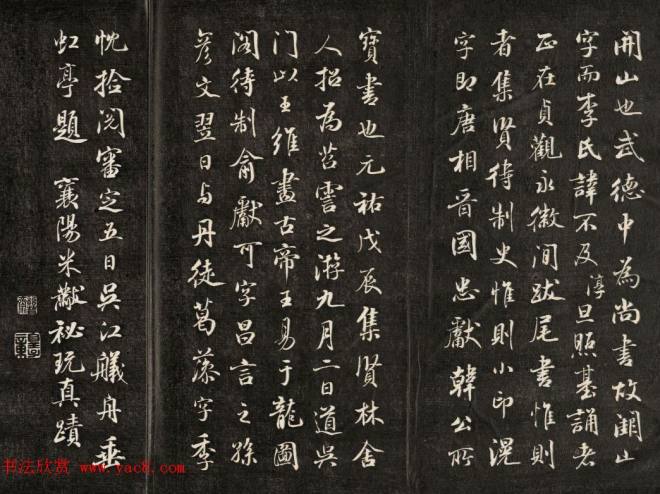 開山也武德中為尚書故開山
字而李氏諱不及淳旦照基誦者
正在貞觀永徽間跋尾書惟則
者集賢待制史惟則小印滉
字即唐相晉國忠獻韓公所
寶書也元祐戊辰集賢林舍
人招為苕霅之游九月二日道吳
门以王維畫古帝王易于龍圖
阁待制俞獻可字昌言之孫
彥文翌日与丹徒葛藻字季
忱拾閱審定五日吳江艤舟垂
虹亭題 襄陽米黻祕玩真蹟
书法欣赏 www.yac8.com